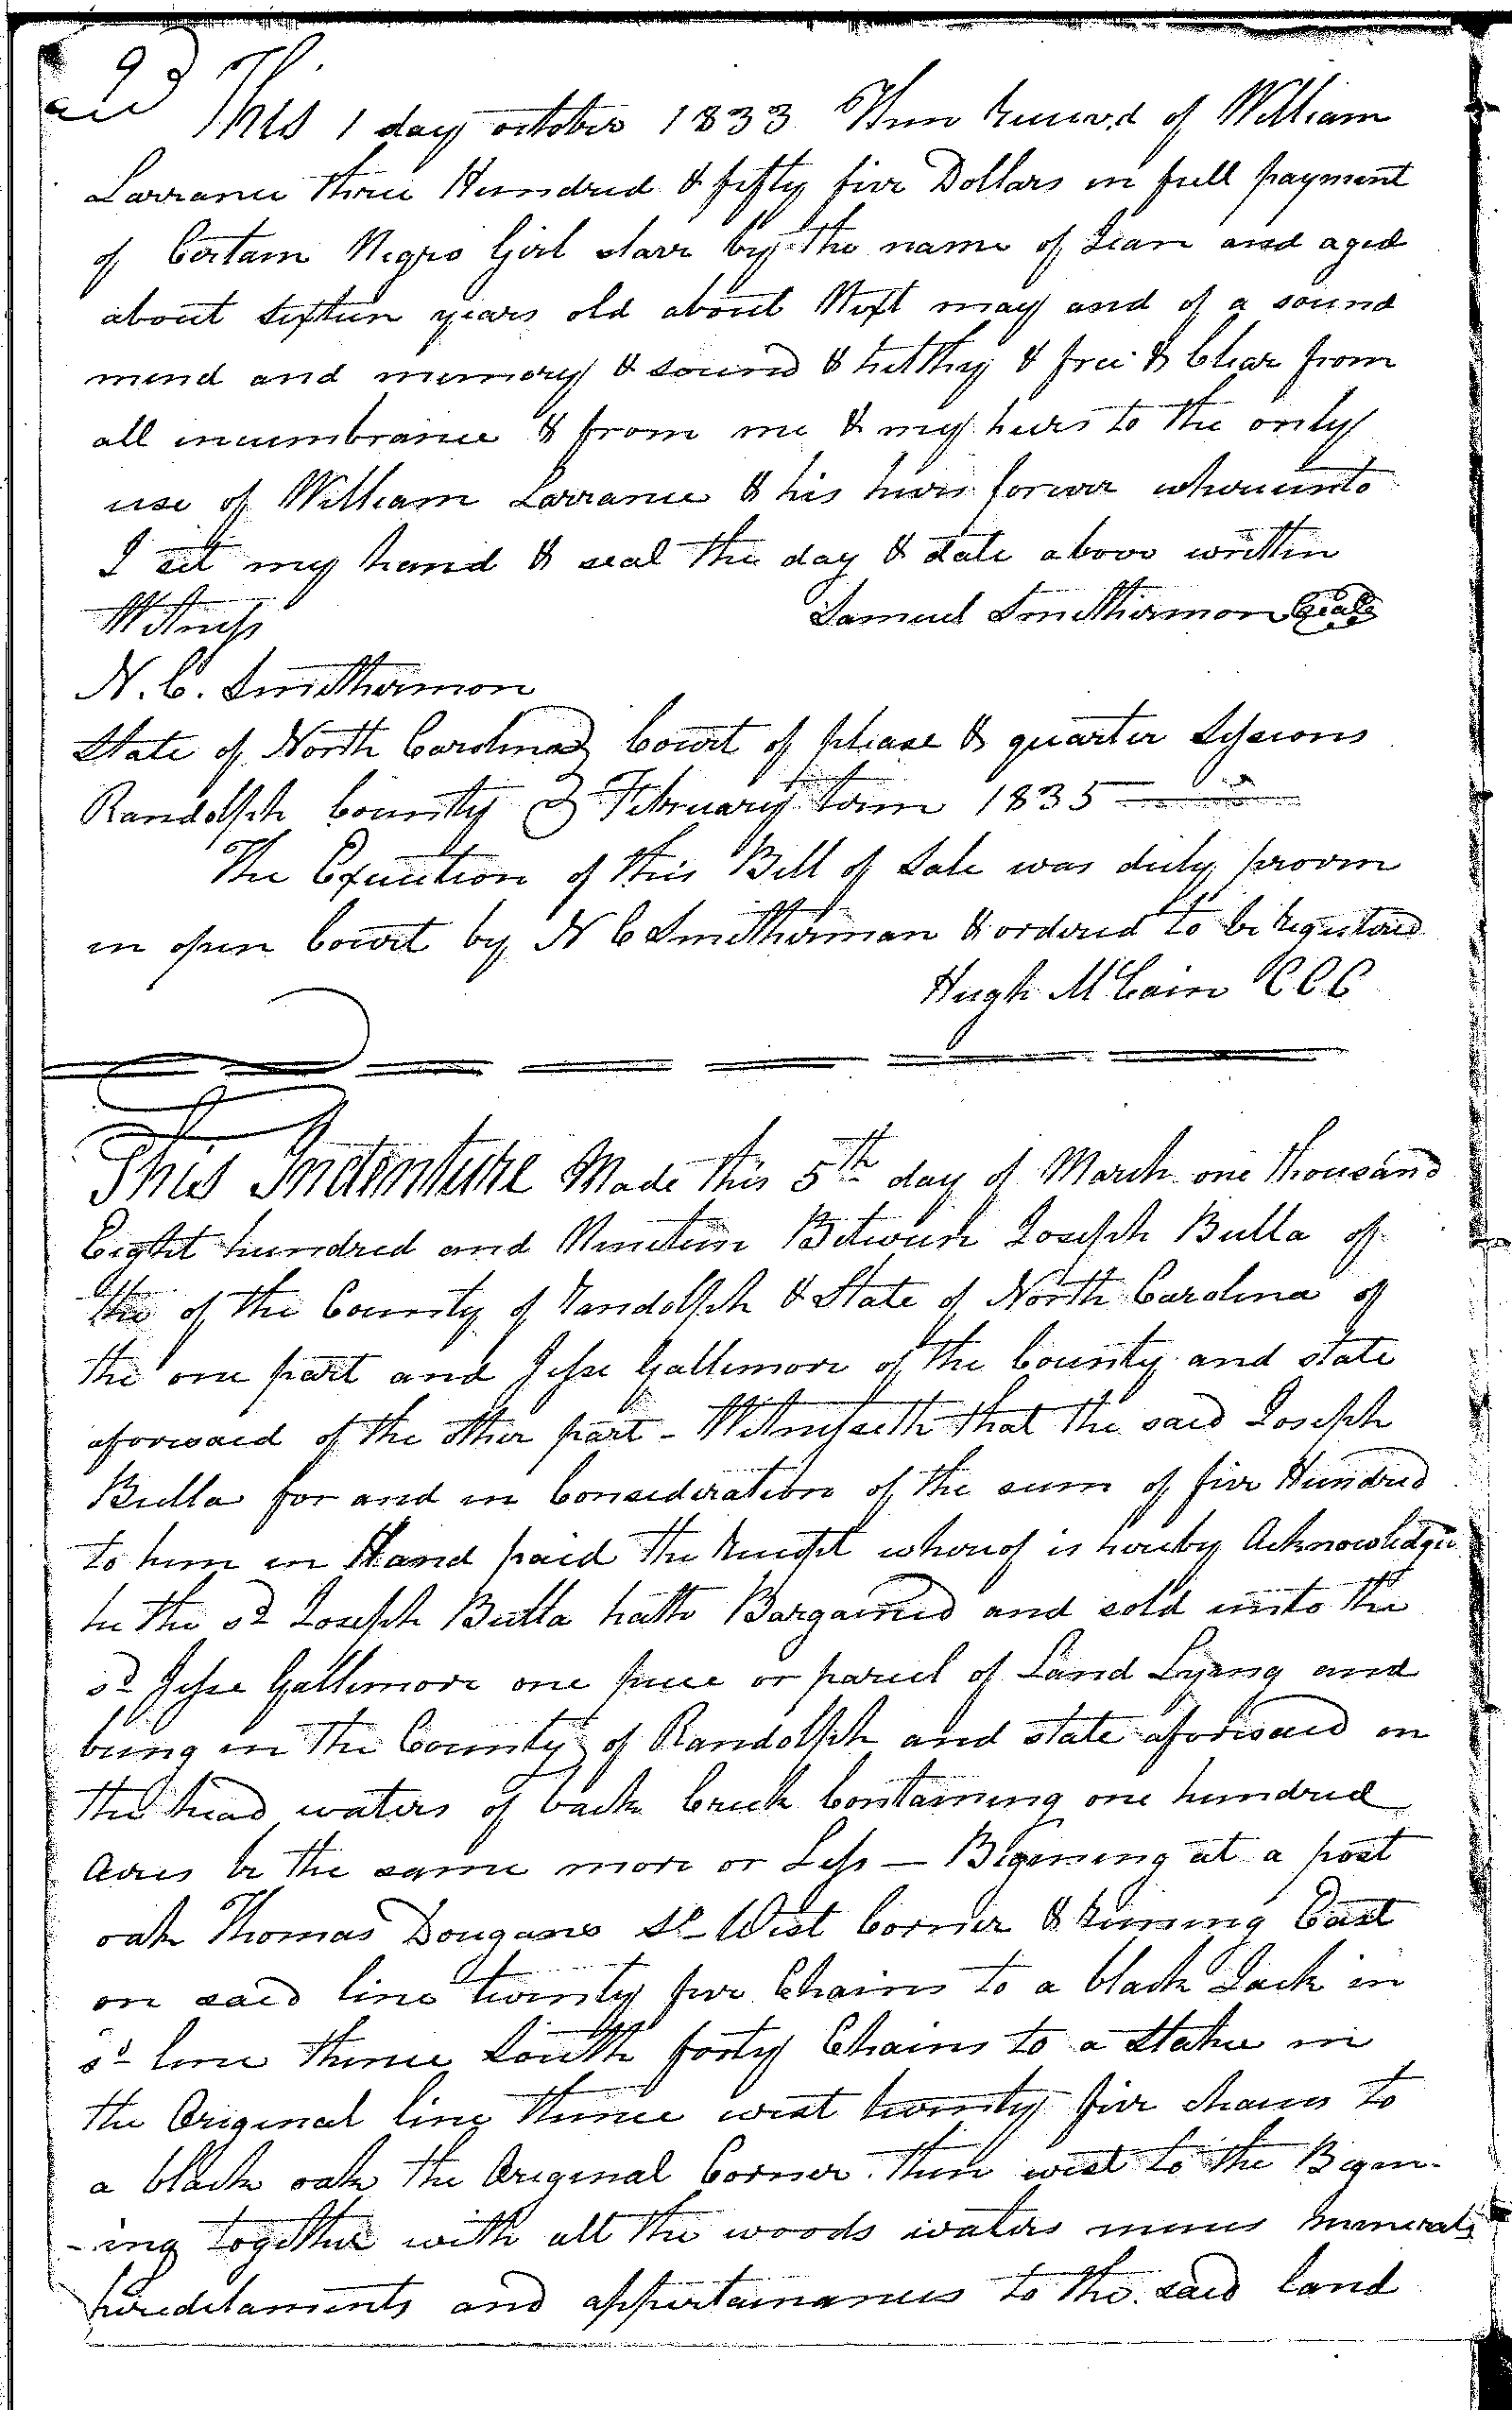 93
This 1 day october 1833 Then Receiv,d of William
Larrance three Hundred & fifty five Dollars in full payment
of Certain Negro Girl slave by the name of Jean and aged
about sixteen years old about Next may and of a sound
mind and memory & sound & helthy & free & Clear from
all incumbrance & from me & my heirs to the only
use of William Larrance & his heirs forever whereunto
I set my hand & seal the day & date above written
Witness Samuel Smitherman Seal
N. C. Smitherman
State of North Carolina Court of please & quarter Sessions
Randolph County February term 1835
The Execution of this Bill of Sale was duly proven
in open Court by N C Smitherman & ordered to be Registered
Hugh McCain CCC
This Indenture Made this 5th day of March one thousand
Eight hundred and Nineteen Between Joseph Bulla of
the of the County of Randolph & State of North Carolina of
the one part and Jesse Gallimore of the County and state
aforesaid of the other part - Witnesseth that the said Joseph
Bulla for and in Consideration of the sum of five Hundred
to him in Hand paid the Receipt whereof is hereby Acknowledge
he the sd Joseph Bulla hath Bargained and sold unto the
sd Jesse Gallimore one piece or parcel of Land Lyeng and
being in the County of Randolph and state aforesaid on
the head waters of back Creek Containing one hundred
Acres be the same more or Less — Begening at a post
oak Thomas Dougans So West Corner & Runing East
on said line twenty five Chains to a black Jack in
sd line thence South forty Chains to a Stake in
the Original line thence west twenty five chains to
a black oak the Original Corner. then west to the Begen-
-ing together with all the woods waters mines minerals
hereditaments and appertainances to the said land